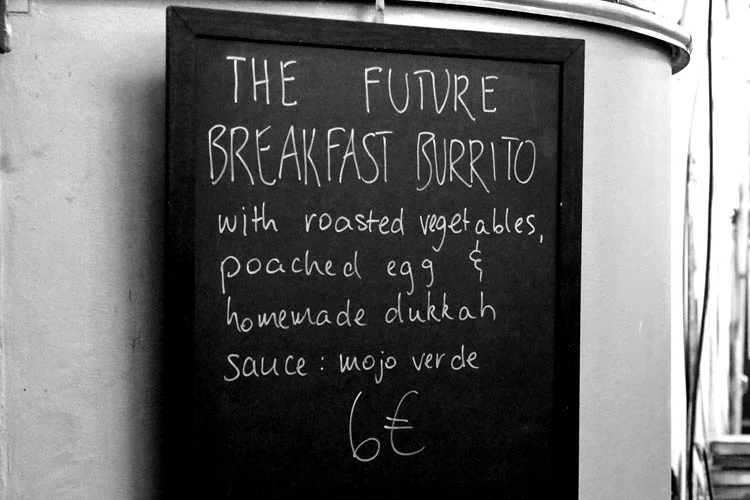 THE FUTURE
BREAKFAST BURRITO
with roasted vegetables,
poached egg &
homemade dukkah
sauce: mojo verde
6€